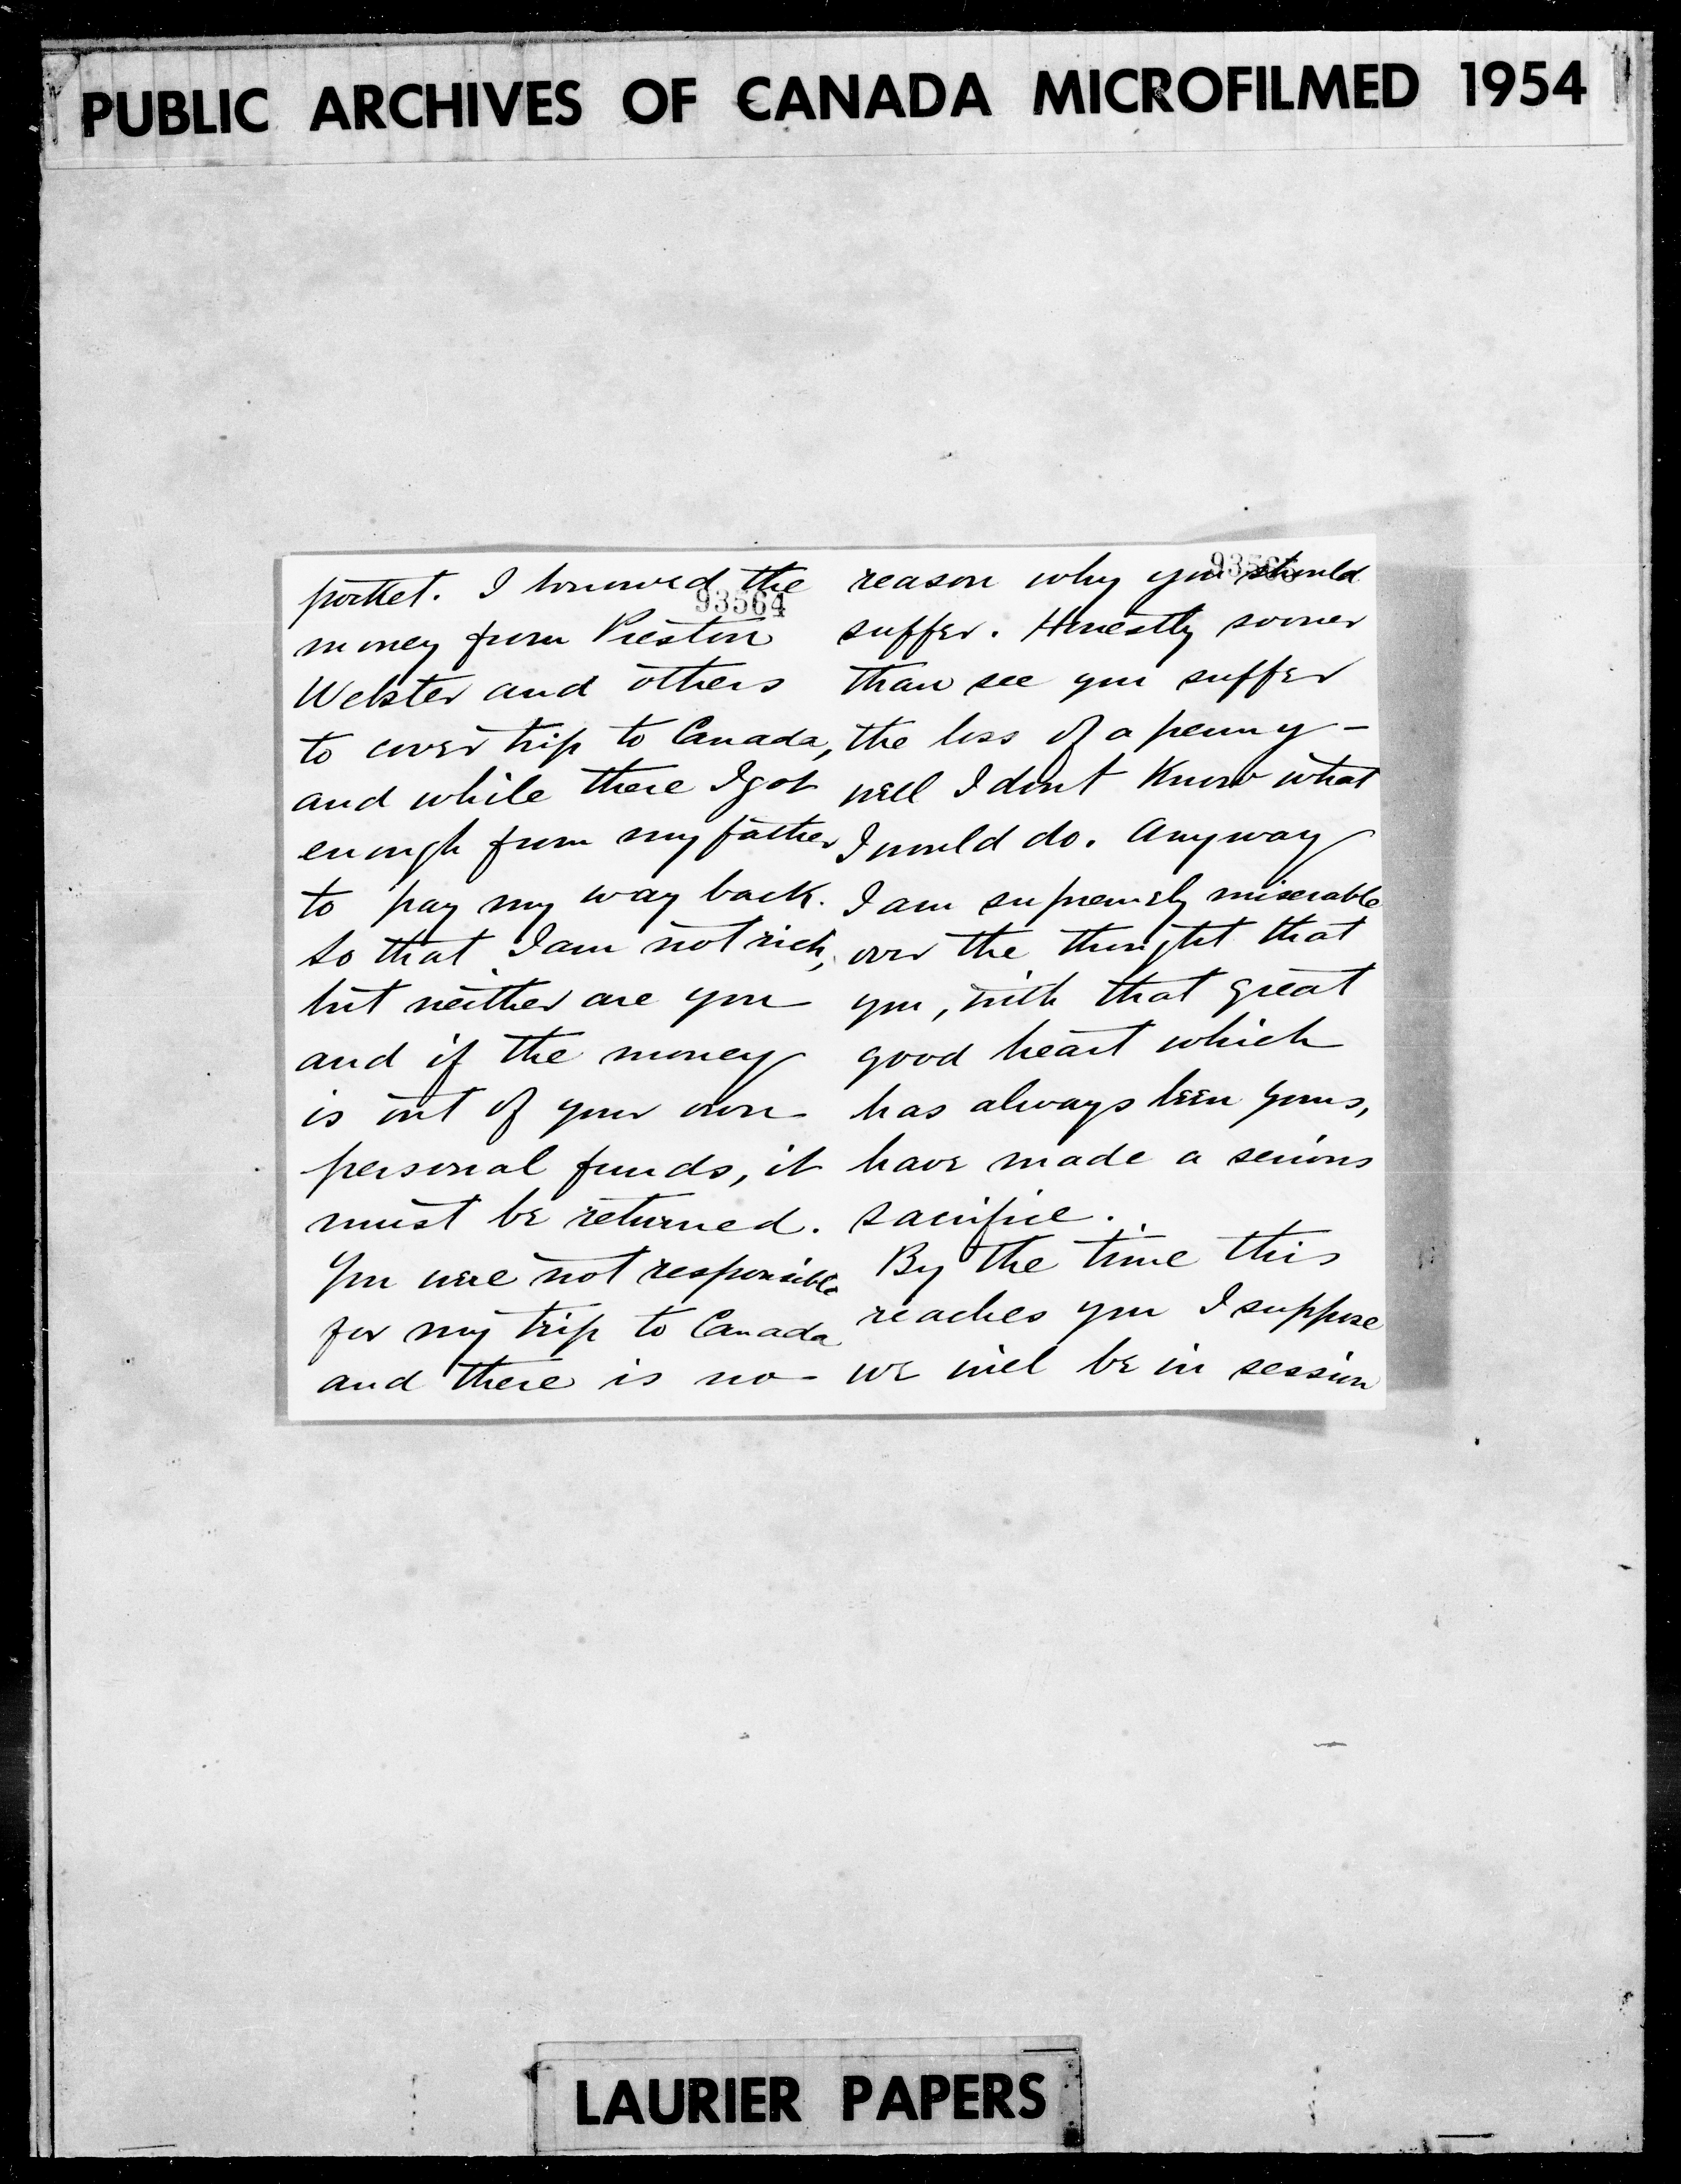 PUBLIC ARCHIVES OF CANADA MICROFILMED 1954
93564
pocket. I borrowed the
money from Preston
Webster and others
to cover trip to Canada,
and while there I got
enough from my father
to pay my way back.
So that I am not rich,
but neither are you
and if the money
is out of your own
personal funds, it
must be returned.
You were not responsible
for my trip to Canada
and there is no
reason why you should
suffer. Honestly sooner
than see you suffer
the loss of a penny -
well I dont know what
I would do. Anyway
I am supremely miserable
over the thought that
you, with that great
good heart which
has always been yours,
have made a serious
sacrifice.
By the time this
reaches you I suppose
we will be in session
LAURIER PAPERS